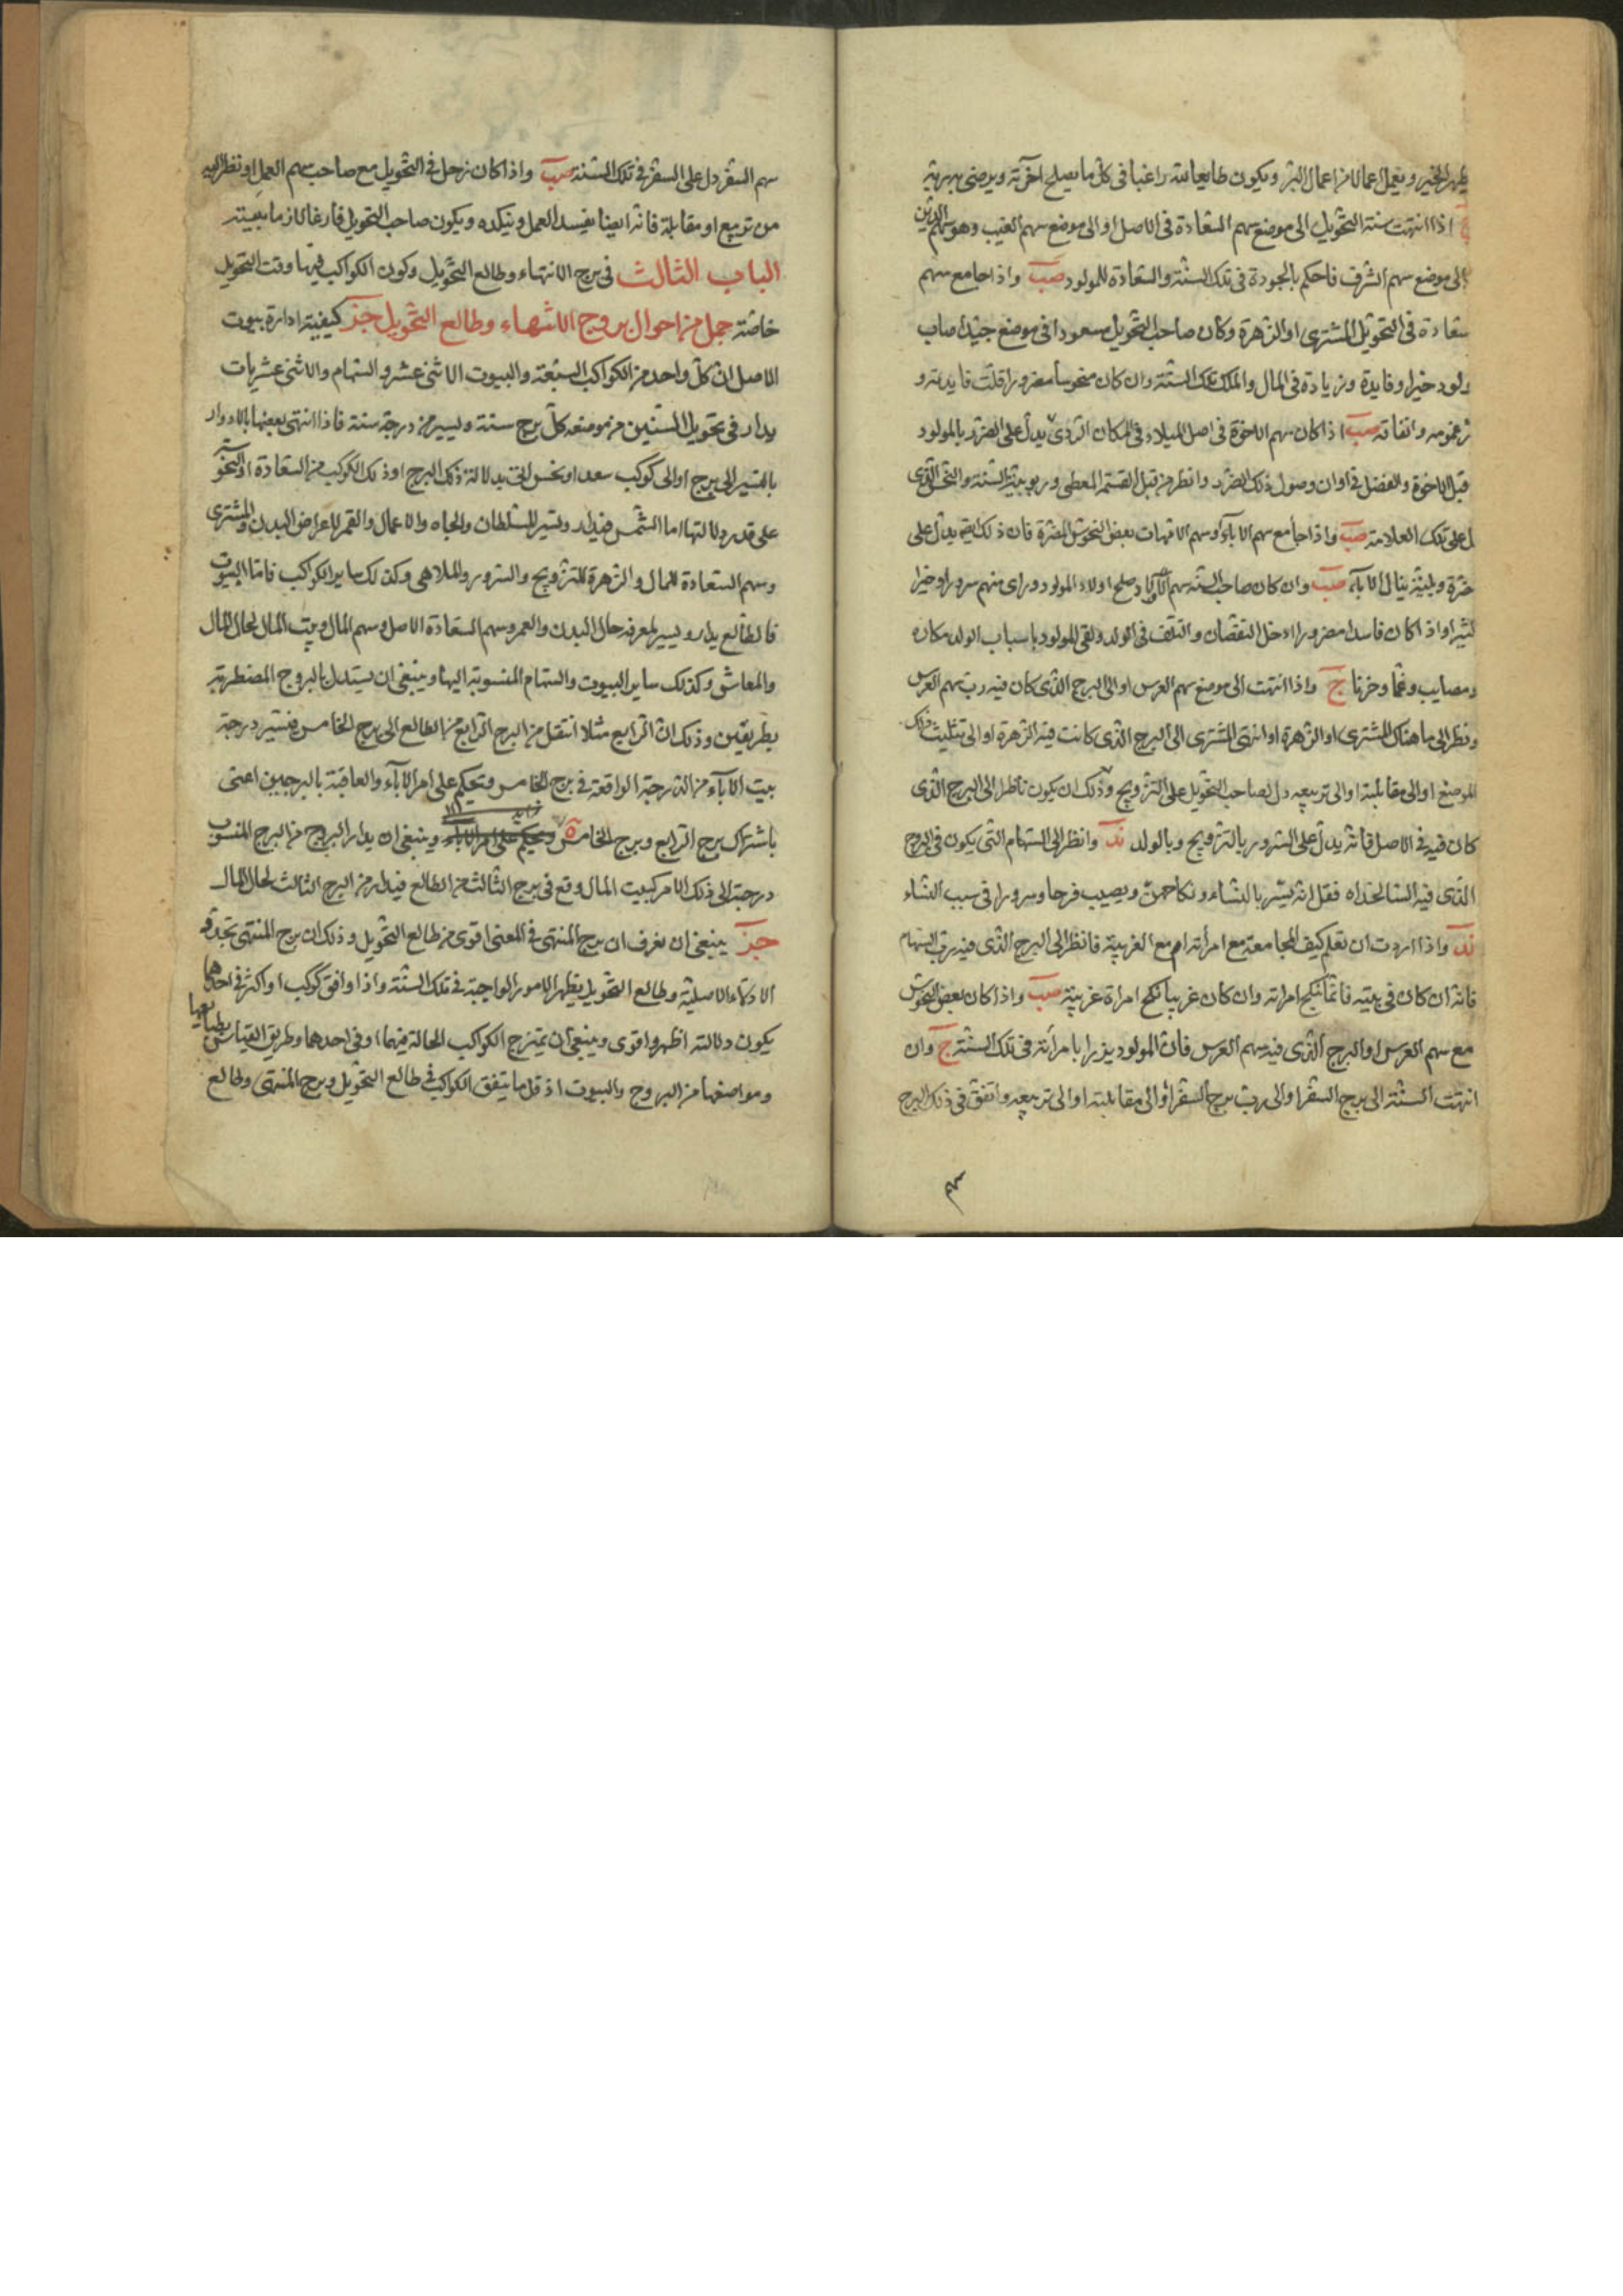 يظهر الخير ويعمل اعمالا من اعمال البر ويكون طايعا لله راغبا فى كل ما يصلح آخرته ويرضى به ربه
اذا انتهت سنة التحويل الى موضع سهم السعادة فى الاصل او الى موضع سهم الغيب وهو سهم الدين
الى موضع سهم الشرف فاحكم بالجودة فى تلك السنة والسعادة للمولود صب واذا جامع سهم
سعادة فى التحويل المشترى او الزهرة وكان صاحب التحويل مسعودا فى موضع جيد اصاب
ولود خيرا وفايدة وزيادة فى المال والملك تلك السنة وان كان منحوسا مضرورا قلت فايدته و
غمومه وانفاقه صب اذا كان سهم الاخوة فى اصل الميلاد فى المكان الردى يدل على الضرر بالمولود
قبل الاخوة والفضل فى اوان وصول ذلك الضرر وانظر من قبل القسمة المعطى وربوبية السنة والنحس الذى
ل على تلك العلامة صب واذا جامع سهم الآباء وسهم الامهات بعض النحوس المضرة فان ذلك ايضا يدل على
مضرة وبلية ينال الآباء صب وان كان صاحب السنة سهم الاولاد صلح اولاد المولود وراى منهم سرورا وخيرا
كثيرا واذا كان فاسدا مضرورا دخل النقصان والتلف فى الولد ولقى المولود باسباب الولد مكاره
ومصايب وغما وحزنا ج واذا انتهت الى موضع سهم العرس او الى البرج الذى كان فيه رب سهم العرس
ونظر الى ما هناك المشترى او الزهرة او انتهى المشترى الى البرج الذى كانت فيه الزهرة او الى تثليث ذلك
الموضع او الى مقابلته او الى تربيعه دل لصاحب التحويل على التزويج وذلك ان يكون ناظرا الى البرج الذى
كان فيه فى الاصل فانه يدل على السرور بالتزويج وبالولد ند وانظر الى السهام التى يكون فى البرج
الذى فيه السالخداه فقل انه يسر بالنساء ونكاحهن ويصيب فرحا وسرورا فى سبب النساء
ند واذا اردت ان تعلم كيف المجامعة مع امرأته ام مع الغريبة فانظر الى البرج الذى فيه رب السهام
فانه ان كان فى بيته فانما نكح امراته وان كان غريبا نكح امراة غريبة صب واذا كان بعض النحوس
مع سهم العرس او البرج الذى فيه سهم العرس فان المولود يزرا بامرأته فى تلك السنة ج وان
انتهت السنة الى برج السفر او الى رب برج السفر او الى مقابلته او الى تربيعه واتفق فى ذلك البرج
سهم
سهم السفر دل على السفر فى تلك السنة صب واذا كان زحل فى التحويل مع صاحب سهم العمل او نظر اليه
من تربيع او مقابلة فانه ايضا يفسد العمل وينكده ويكون صاحب التحويل فارغا لازما بيته
الباب الثالث فى برج الانتهاء وطالع التحويل وكون الكواكب فيها وقت التحويل
خاصة جمل من احوال بروج الانتهاء وطالع التحويل جز كيفية ادارة بيوت
الاصل ان كل واحد من الكواكب السبعة والبيوت الاثنى عشر والسهام والاثنى عشريات
يدار فى تحويل السنين من موضعه كل برج سنة ويسير من درجة سنة فاذا انتهى بعضها بالادوار
بالتسيير الى برج او الى كوكب سعد او نحس اتى بدلالة ذلك البرج او ذلك الكوكب من السعادة او النحوسة
على قدر دلالتها اما الشمس فيدار ويسير للسلطان والجاه والاعمال والقمر لاعراض البدن والمشترى
وسهم السعادة للمال والزهرة للتزويج والسرور والملاهى وكذلك ساير الكواكب فاما البيوت
فالطالع يدار ويسير لمعرفة حال البدن والعمر وسهم السعادة الاصل وسهم المال وبيت المال لحال المال
والمعاش وكذلك ساير البيوت والسهام المنسوبة اليها وينبغى ان يستدل بالبروج المضطربة
بطريقين وذلك ان الرابع مثلا انتقل من البرج الرابع من الطالع الى برج الخامس فنسير درجة
بيت الآباء من الدرجة الواقعة فى برج الخامس ونحكم على امر الآباء والعاقبة بالبرجين اعنى
باشتراك برج الرابع وبرج الخامس ونحكم على امر الآباء وينبغى ان يدار البروج من البرج المنسوب
درجته الى ذلك الامر كبيت المال وقع فى برج الثالث من الطالع فيدار من البرج الثالث لحال المال
جز ينبغى ان نعرف ان برج المنتهى فى المعنى اقوى من طالع التحويل وذلك ان برج المنتهى تجدد قوة
الادلاء الاصلية وطالع التحويل يظهر الامور الواجبة فى تلك السنة واذا وافق كوكب او اكثر فى احدهما
يكون دلالته اظهر واقوى وينبغى ان يمتزج الكواكب الحالة فيهما او فى احدهما وطريق القياس بطبايعها
ومواضعها من البروج والبيوت اذ قل ما يتفق الكواكب فى طالع التحويل وبرج المنتهى وطالع